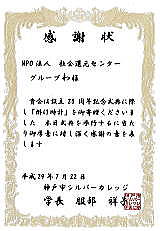 感謝状
NPO法人 社会還元センター
グループ和様
貴会は設立23周年記念式典に際
し「掛け時計」を御寄贈くださいまし
た 本日式典を挙行するに当た
り御厚意に対し深く感謝の意を表
します
平成29年7月22日
神戸市シルバーカレッジ
学長 服部 祥子